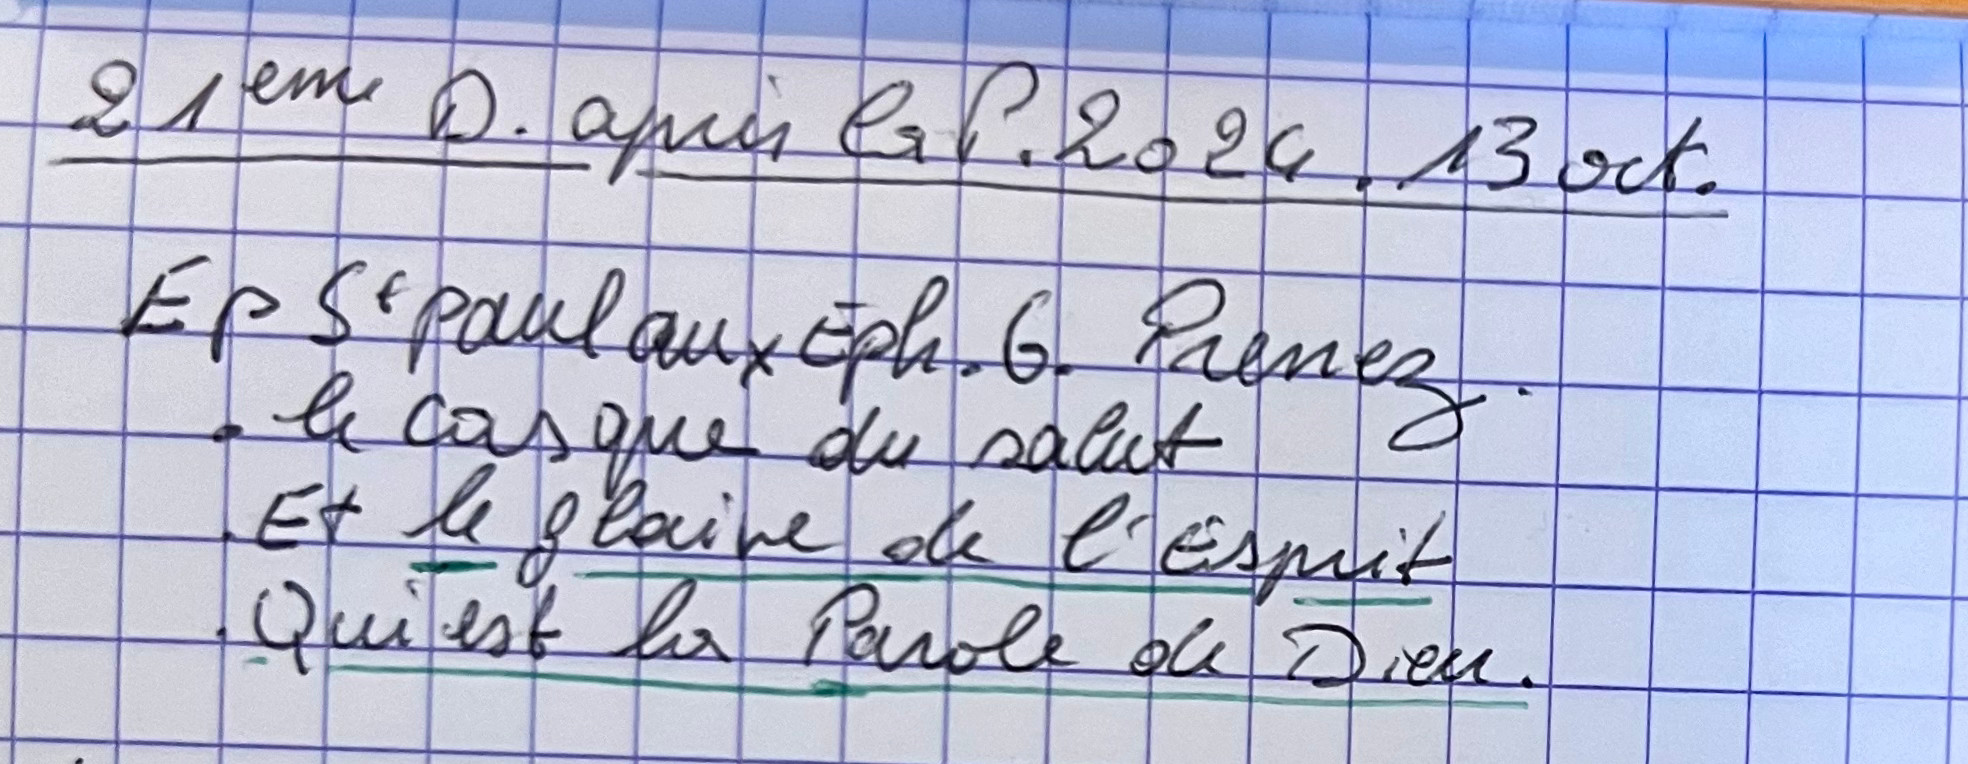 21ème D. après la P. 2024. 13 oct.
Ep St paul aux Eph. 6. Prenez.
. le casque du salut
. Et le glaive de l'Esprit
. Qui est la Parole de Dieu.